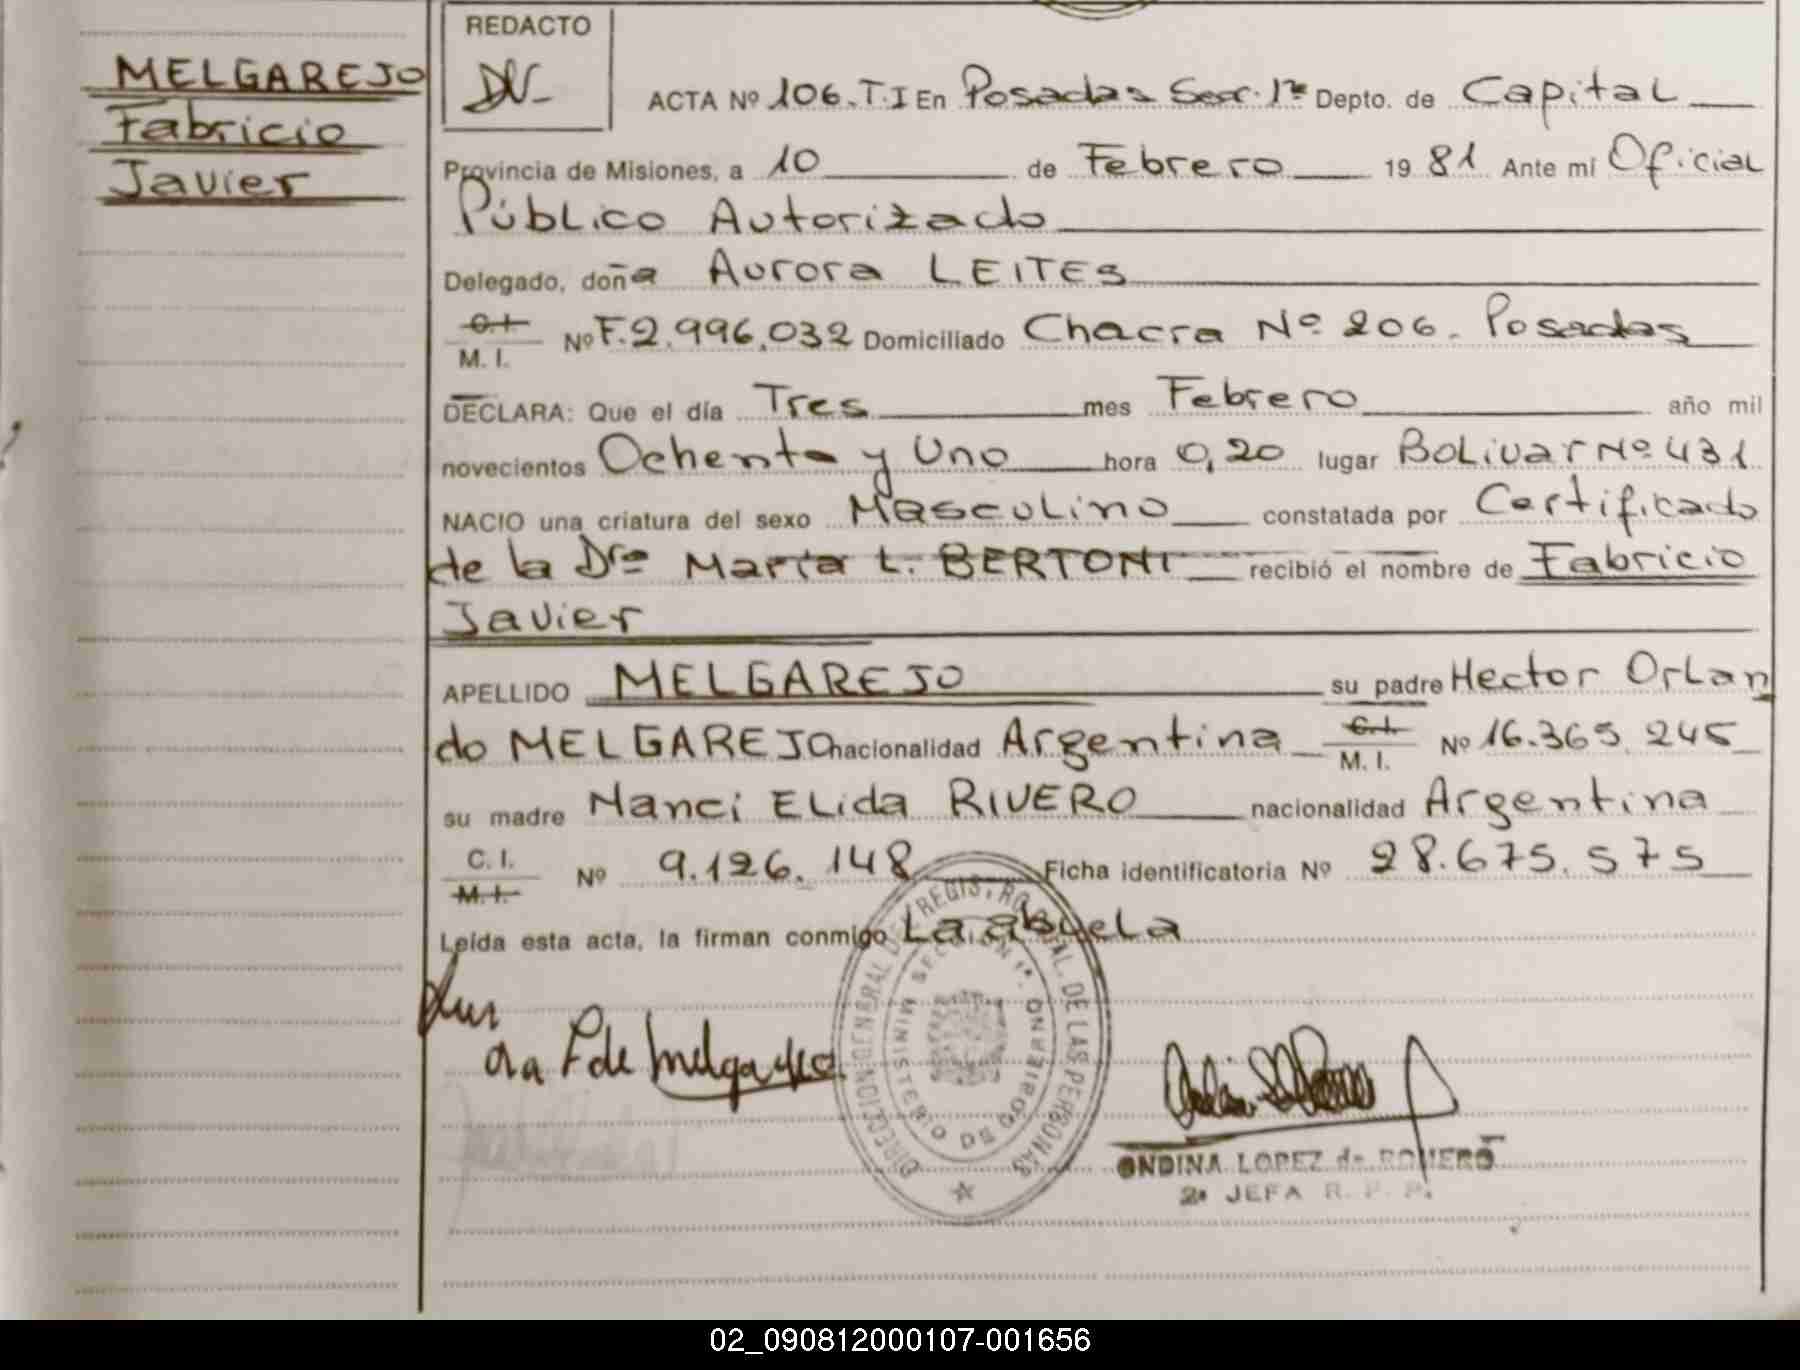 MELGAREJO
Fabricio
Javier
REDACTO
ACTA Nº 106.T.I En Posadas Secc. 1ra Depto. de Capital
Provincia de Misiones, a 10 de Febrero 1981 Ante mi Oficial
Público Autorizado
Delegado, doña Aurora LEITES
C.I. M. I. Nº F.2.996.032 Domiciliado Chacra Nº 206. Posadas
DECLARA: Que el día Tres mes Febrero año mil
novecientos Ochenta y Uno hora 0,20 lugar Bolivar Nº 431
NACIO una criatura del sexo Masculino constatada por Certificado
de la Dra María L. BERTONI recibió el nombre de Fabricio
Javier
APELLIDO MELGAREJO su padre Hector Orlan
do MELGAREJO nacionalidad Argentina C.I. M. I. Nº 16.365.245
su madre Nanci Elida RIVERO nacionalidad Argentina
C. I. M. I. Nº 9.126.148 Ficha identificatoria Nº 28.675.575
Leída esta acta, la firman conmigo La abuela
de Melgarejo
DIRECCION GENERAL DEL REGIS. PROVINCIAL. DE LAS PERSONAS
MINISTERIO DE GOBIERNO SECCION 1ª.
ONDINA LOPEZ de ROMERO
2ª JEFA R. P. P.
02_090812000107-001656